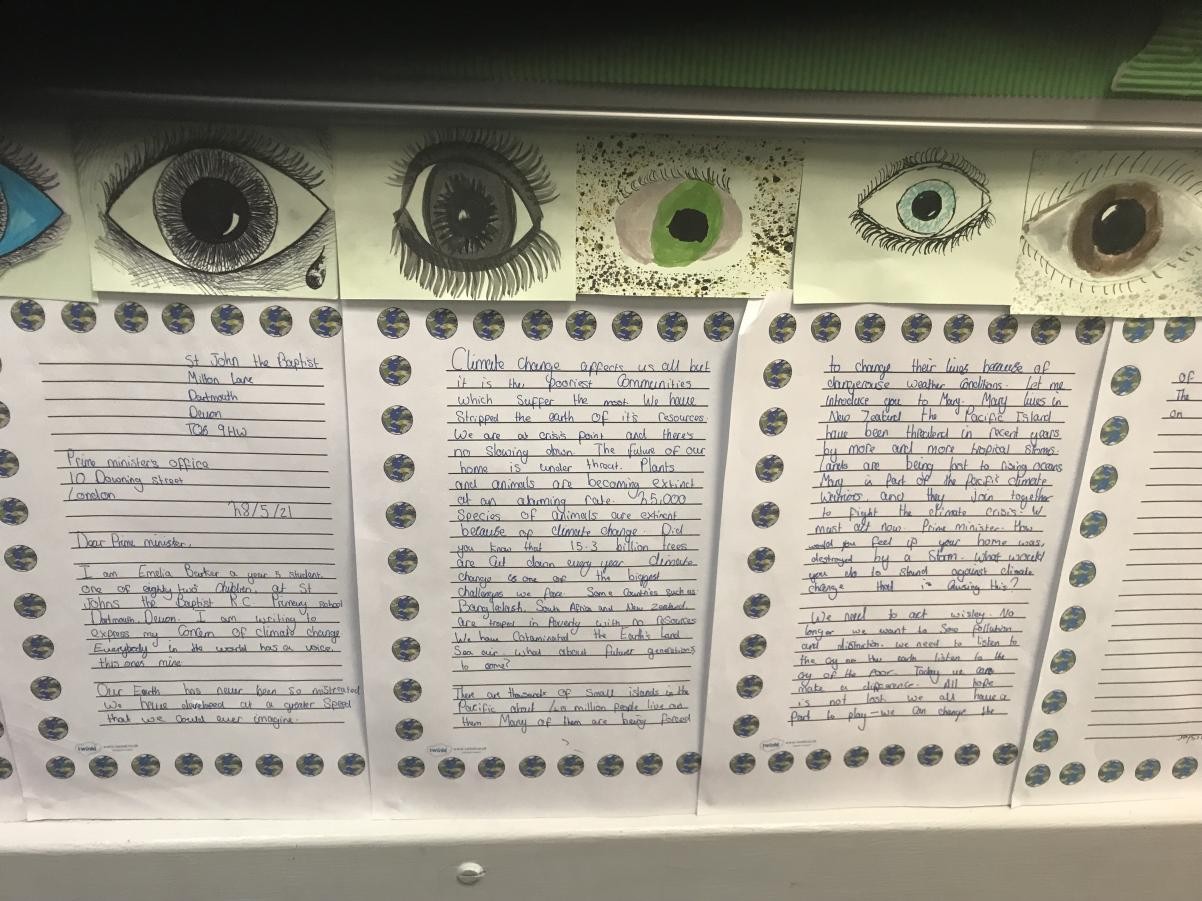 St John the Baptist
Milton Lane
Dartmouth
Devon
TQ6 9HW
Prime minister's office
10 Downing street
London
28/5/21
Dear Prime minister,
I am Emelia Barker a year 5 student.
one of eighty two children, at St
Johns the Baptist R.C. Primary school
Dartmouth, Devon. I am writing to
express my concern of climate change
Everybody in the world has a voice.
this ones mine
Our Earth has never been so mistreated
We have developed at a greater speed
that we could ever imagine.
twinkl
Climate Change affects us all but
it is the pooriest Communities
which suffer the most. We have
Stripped the earth of it's resources.
We are at crisis point and there's
no slowing down. The future of our
home is under threat. Plants
and animals are becoming extinct
at an alarming rate. 25,000
Species of animals are extinct
because of climate change. Did
you know that 15.3 billion trees
are cut down every year climate
change is one of the biggest
challenges we face. Some Countries such as
Bangladesh, South Africa and New Zealand,
are traped in Poverty with no resources
We have Cataminated the Earth's Land
Sea air. what about future generations
to come?
There are thousands of Small islands in the
Pacific about million people live on
them Many of them are being forced
twinkl
to change their lives because of
dangerouse weather conditions. Let me
introduce you to Mary. Mary lives in
New Zealand the Pacific Island
have been in recent years
by more and more tropical storms.
Lands are being lost to rising oceans
Mary is part of the Pacific climate
Warriors, and they Join together
to fight the climate crisis. W
must act now. Prime minister. How
would you feel if your home was,
destroyed by a Storm. What would
you do to stand against climate
change that is causing this?
We need to act wisley. No
longer we want to See Pollution
and distruction. we need to listen to
the cry on the earth listen to the
cry of the Poor. Today we can
make a difference. All hope
is not lost we all have a
part to play – we can change the
twinkl
of
The
on